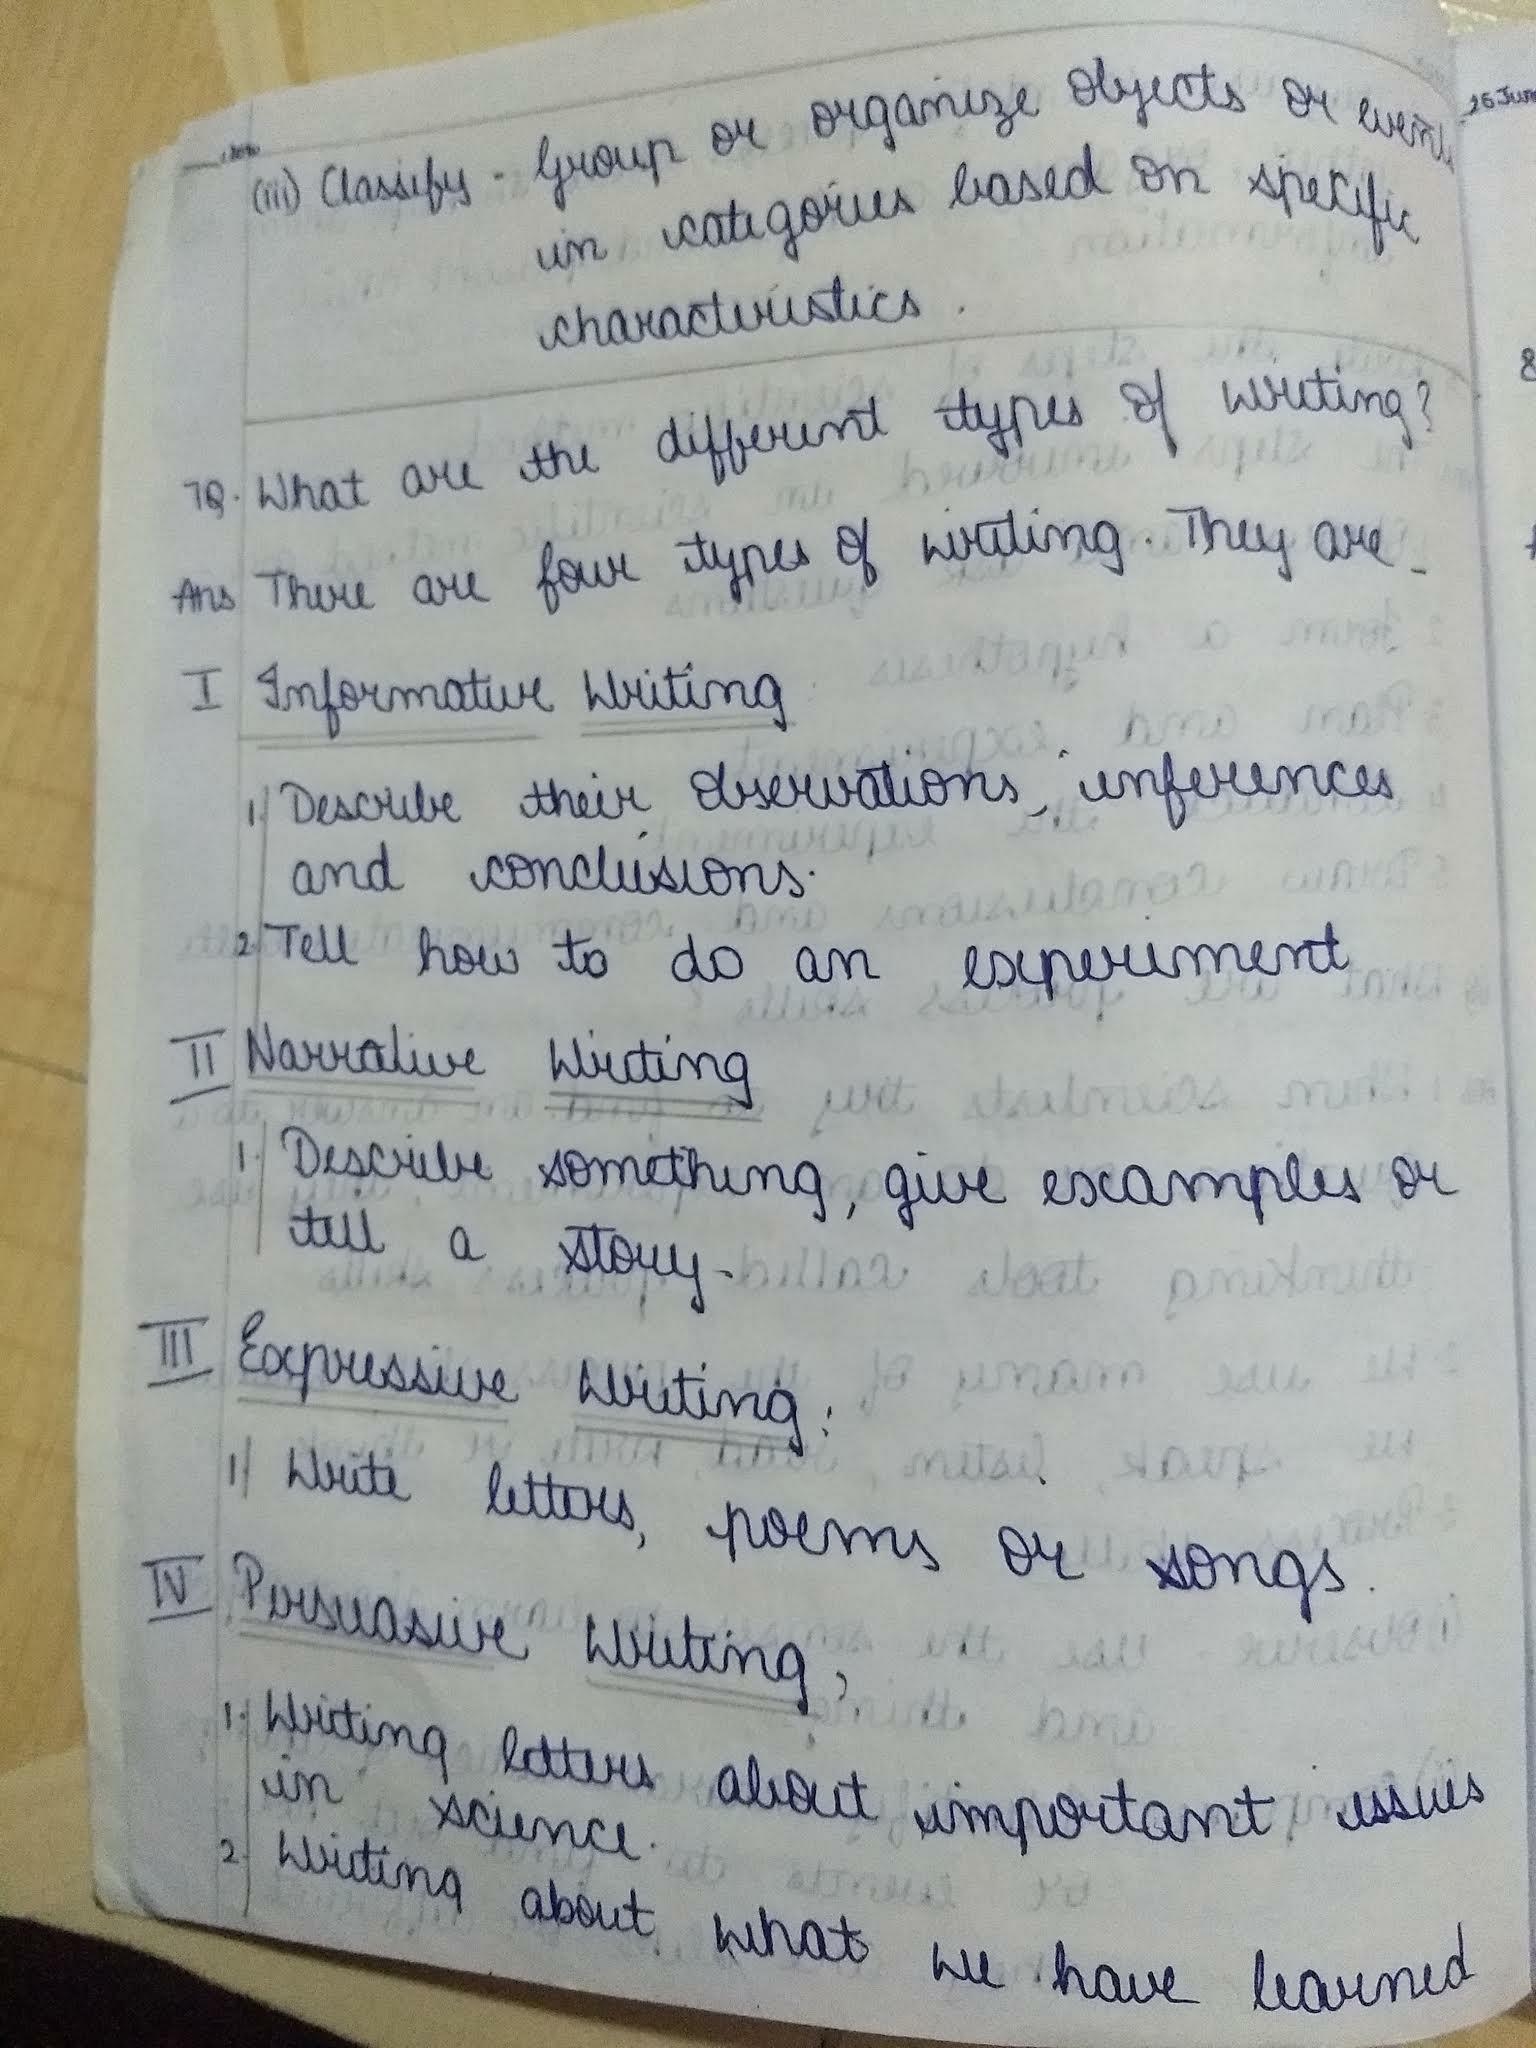 (iii) Classify - Group or organize objects or events
in categories based on specific
characteristics.
7Q. What are the different types of writing?
Ans There are four types of writing. They are -
I Informative Writing
1. Describe their observations, inferences
and conclusions.
2. Tell how to do an experiment
II Narrative Writing
1. Describe something, give examples or
tell a story.
III Expressive Writing:
1. Write letters, poems or songs.
IV Persuasive Writing;
1. Writing letters about important issues
in science.
2. Writing about what we have learned
25 Jun
8